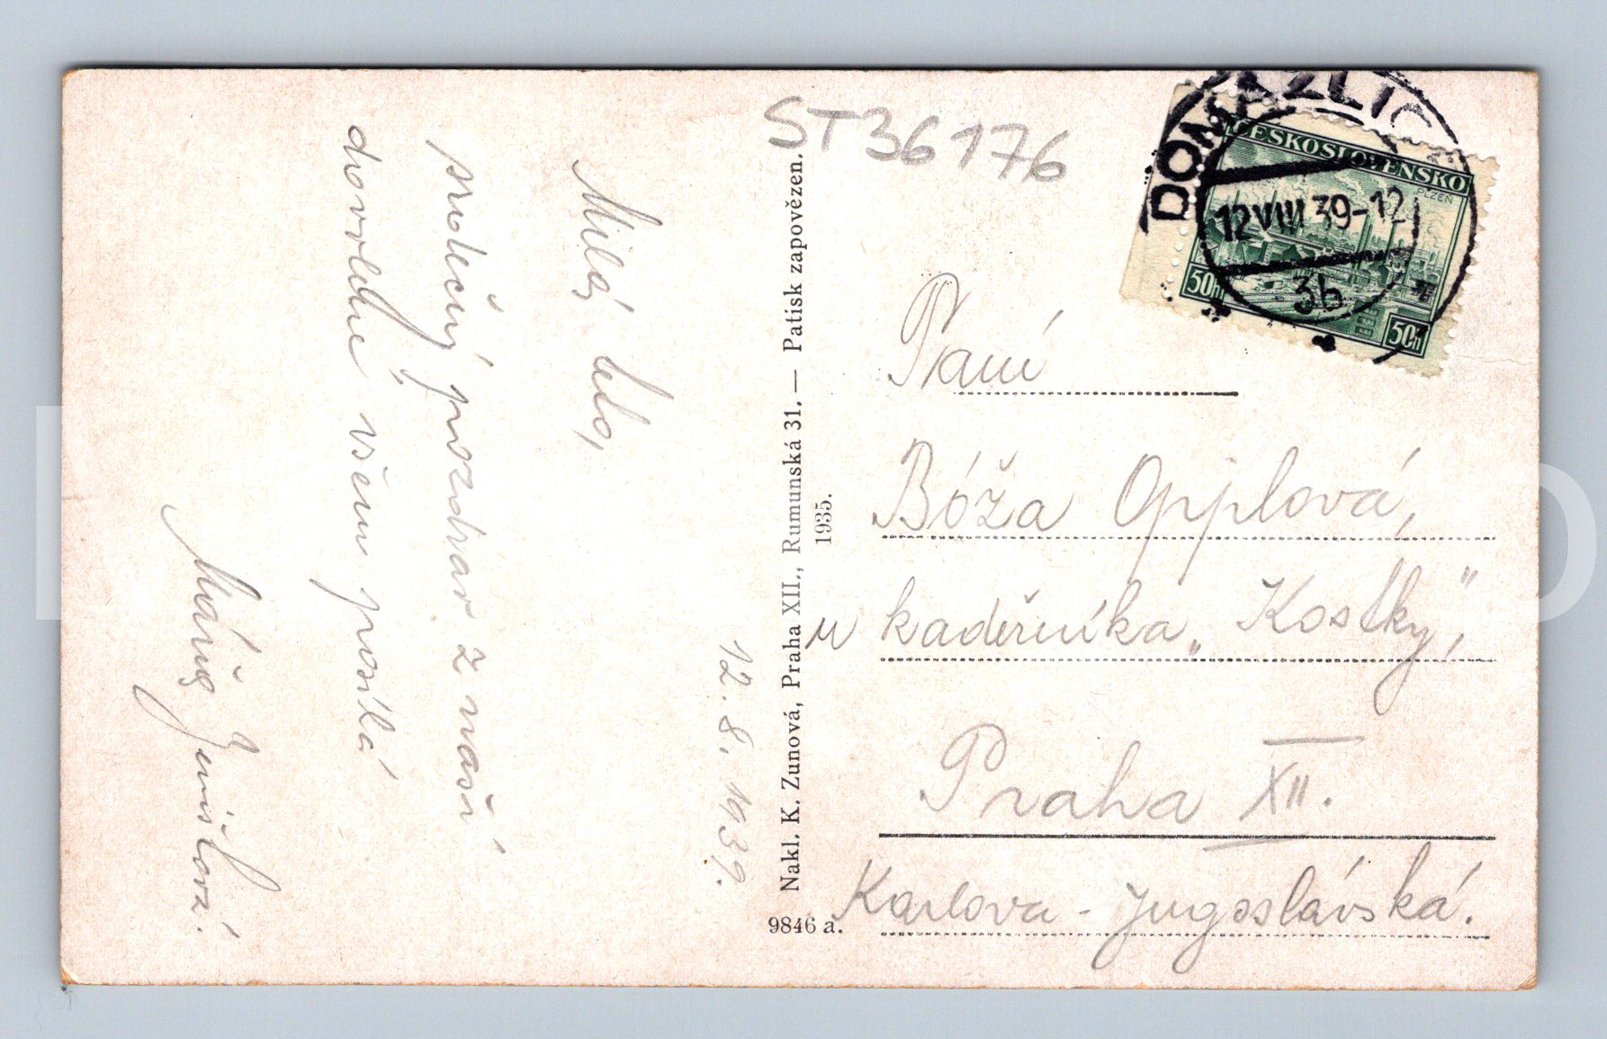 ST36176
DOMAŽLIC
ČESKOSLOVENSKO
PLZEŇ
12 VIII 39-12
3b
50h
50h
12. 8. 1939.
Milá
srdečný pozdrav z naší
dovolené všem posílá
Máňa
Nakl. K. Zunová, Praha XII., Rumunská 31. — Patisk zapovězen.
1935.
9846 a.
Paní
Bóža Opplová,
u kadeřníka „Kostky,"
Praha XII.
Karlova - Jugoslávská.